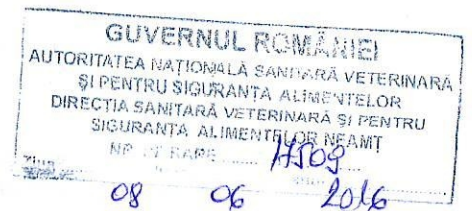 GUVERNUL ROMÂNIEI
AUTORITATEA NAŢIONALĂ SANITARĂ VETERINARĂ
ŞI PENTRU SIGURANŢA ALIMENTELOR
DIRECŢIA SANITARĂ VETERINARĂ ŞI PENTRU
SIGURANŢA ALIMENTELOR NEAMŢ
08 06 2016